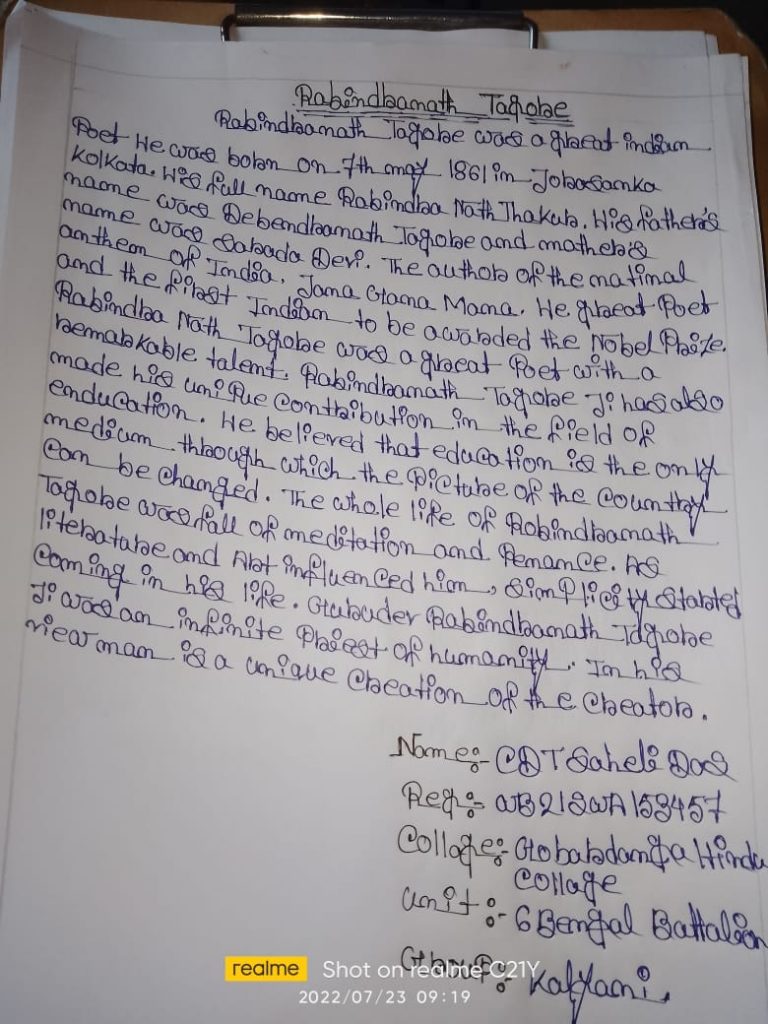 Rabindranath Tagore
Rabindranath Tagore was a great indian
Poet He was born on 7th may 1861 in Jorasanka
Kolkata. His full name Rabindra Nath Thakur. His father's
name was Debendranath Tagore and mather's
name was Sarada Devi. The author of the natinal
anthem of India, Jana Gana Mana. He great Poet
and the first Indian to be awarded the Nobel Prize.
Rabindra Nath Tagore was a great Poet with a
remarkable talent. Rabindranath Tagore Ji has also
made his unique contribution in the field of
enducation. He believed that education is the only
medium through which the picture of the country
can be changed. The whole life of Robindranath
Tagore was fall of meditation and Penance. As
literature and Art influenced him, simplicity started
coming in his life. Gurudev Rabindranath Tagore
Ji was an infinite Priest of humanity. In his
view man is a unique creation of the creator.
Name:- CDT Saheli Das
Reg:- WB21SWA153457
Collage:- Gobardanga Hindu
Collage
Unit:- 6 Bengal Battalion
Group:- Kalyani.
realme Shot on realme C21Y
2022/07/23 09:19